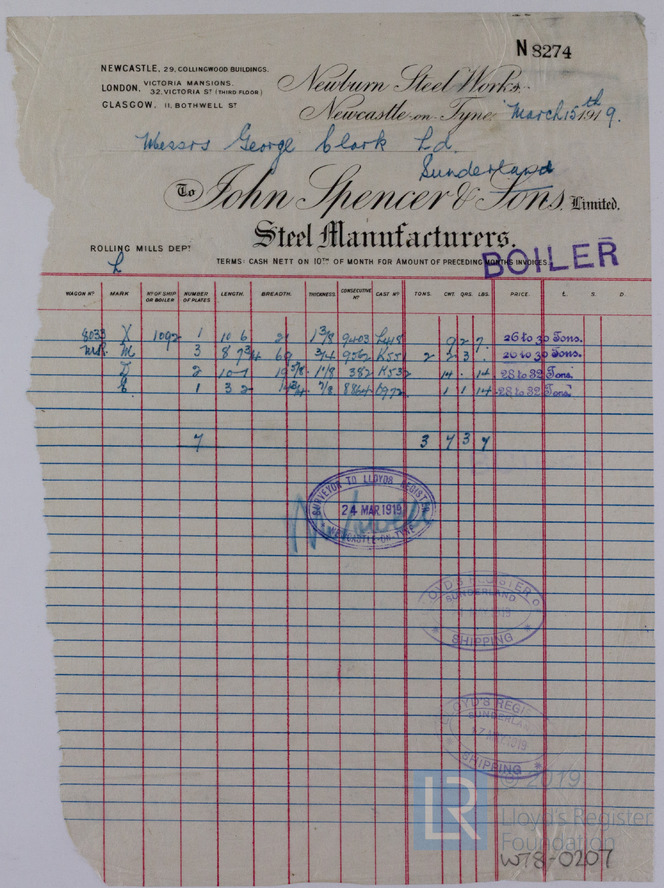 N 8274
NEWCASTLE, 29, COLLINGWOOD BUILDINGS.
LONDON, VICTORIA MANSIONS, 32, VICTORIA ST (THIRD FLOOR)
GLASGOW, 11, BOTHWELL ST
Newburn Steel Works,
Newcastle-on-Tyne, March 15th 1919.
Messrs George Clark Ld.
Sunderland
To John Spencer & Sons, Limited.
Steel Manufacturers.
ROLLING MILLS DEPT
TERMS: CASH NETT ON 10TH OF MONTH FOR AMOUNT OF PRECEDING MONTHS INVOICES
BOILER
WAGON No MARK No OF SHIP OR BOILER NUMBER OF PLATES LENGTH. BREADTH. THICKNESS. CONSECUTIVE No CAST No TONS. CWT. QRS. LBS. PRICE. £. S. D.
8033 X 1092 1 10 6 1 3/8 9403 9 2 7 26 to 30 Tons.
M 3 3/4 9562 K551 2 2 3 26 to 30 Tons.
2 10-7 19 5/8 1 1/8 382 K532 14 . 14 28 to 32 Tons.
1 3 2 14 3/4 7/8 8864 1 1 14 28 to 32 Tons.
7 3 7 3 7
SURVEYOR TO LLOYDS REGISTER
24 MAR 1919
NEWCASTLE-ON-TYNE
LOYD'S REGISTER O
SUNDERLAND
1919
SHIPPING
LOYD'S REGI
SUNDERLA
1919
SHIPPING
© 2019
LR
Lloyd's Register
Foundation
W78-0207